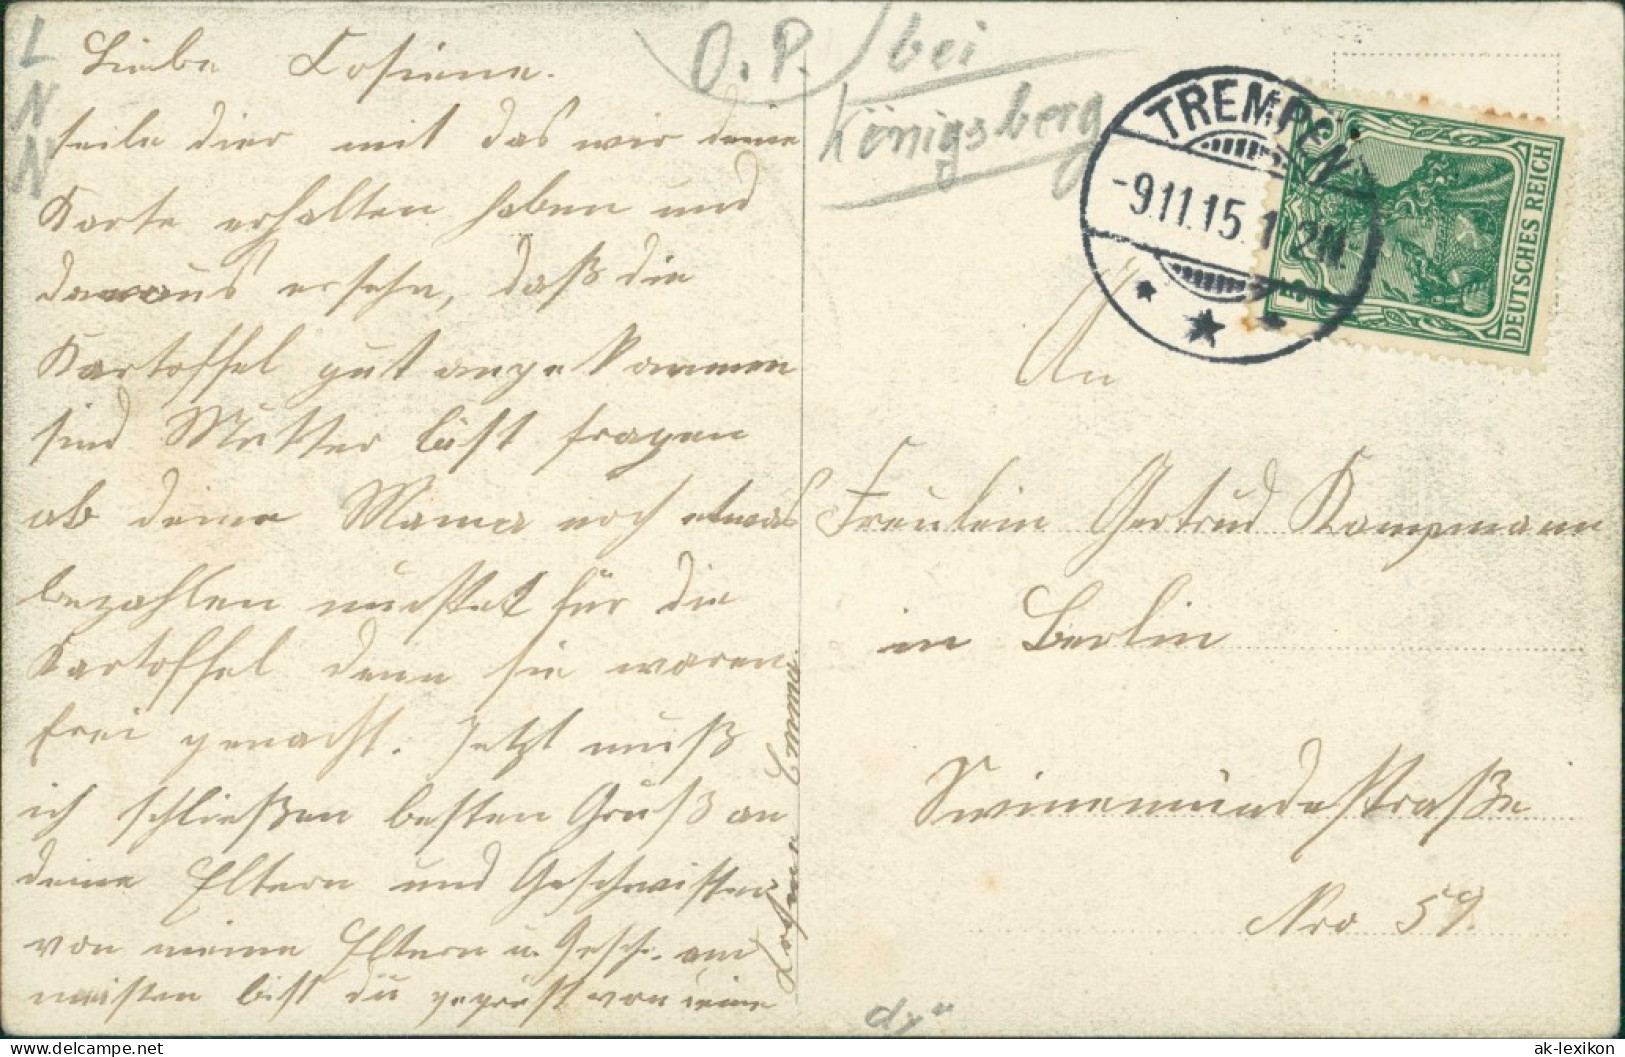 Liebe Cosiene.
teile dier mit das wir deine
Karte erhalten haben und
daraus ersehn, daß die
Kartoffel gut angekommen
sind Mutter läst fragen
ab deine Mama noch etwas
bezahlen mußtet für die
Kartoffel denn sie waren
frei gemacht. Jetzt muß
ich schließen besten Gruß an
deine Eltern und Geschwister
von meine Eltern u. Gesch. am
meisten bist du gegrüst von deine
Emma
O.P. bei
Königsberg
L
N
N
TREMPEN
-9.11.15.1-2N.
DEUTSCHES REICH
5
An
Freulein Gertrud Kampmann
in Berlin
Swinemündestraße
Nro 59.
www.delcampe.net
ak-lexikon